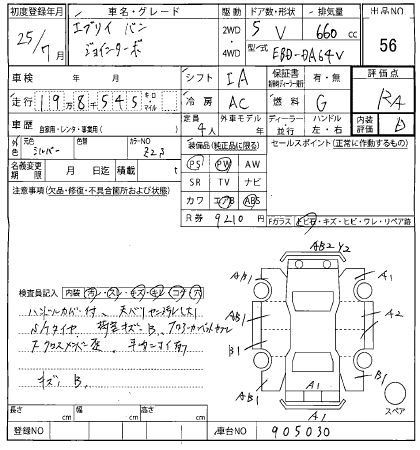 初度登録年月 車名・グレード 駆動 ドア数・形状 排気量 出品NO
25/7月 エブリィ バン 2WD 5 V 660 cc 56
ジョインターボ 4WD 型式 EBD-DA64V
車検 年 月 シフト IA 保証書 有・無 評価点
走行 198千545 キロ・マイル 冷房 AC 燃料 G RA
車歴 自家用・レンタ・事業用( ) 定員 4人 外車モデル 年 ディーラー・並行 ハンドル 左・右 内装評価 D
色 元色 シルバー 色替 カラーNO Z2S 装備品(純正品に限る) セールスポイント(正常に動作するもの)
名義変更期限 月 日迄 積載 t PS PW AW
注意事項(欠品・修復・不具合箇所および状態) SR TV ナビ
カワ エアB ABS
R券 9210円 Fガラス トビ石・キズ・ヒビ・ワレ・リペア跡
AB2 Y2
AB1 A1
検査員記入 内装 汚レ・スレ・キズ・キレ・コゲ・穴
ハンドルカバー付
S/タイヤ 荷室キズB
AB1 A2
B1
AB1 B1
キズ B
A1
A1
スペア
長さ cm 幅 cm 高さ cm
登録NO 車台NO 905030